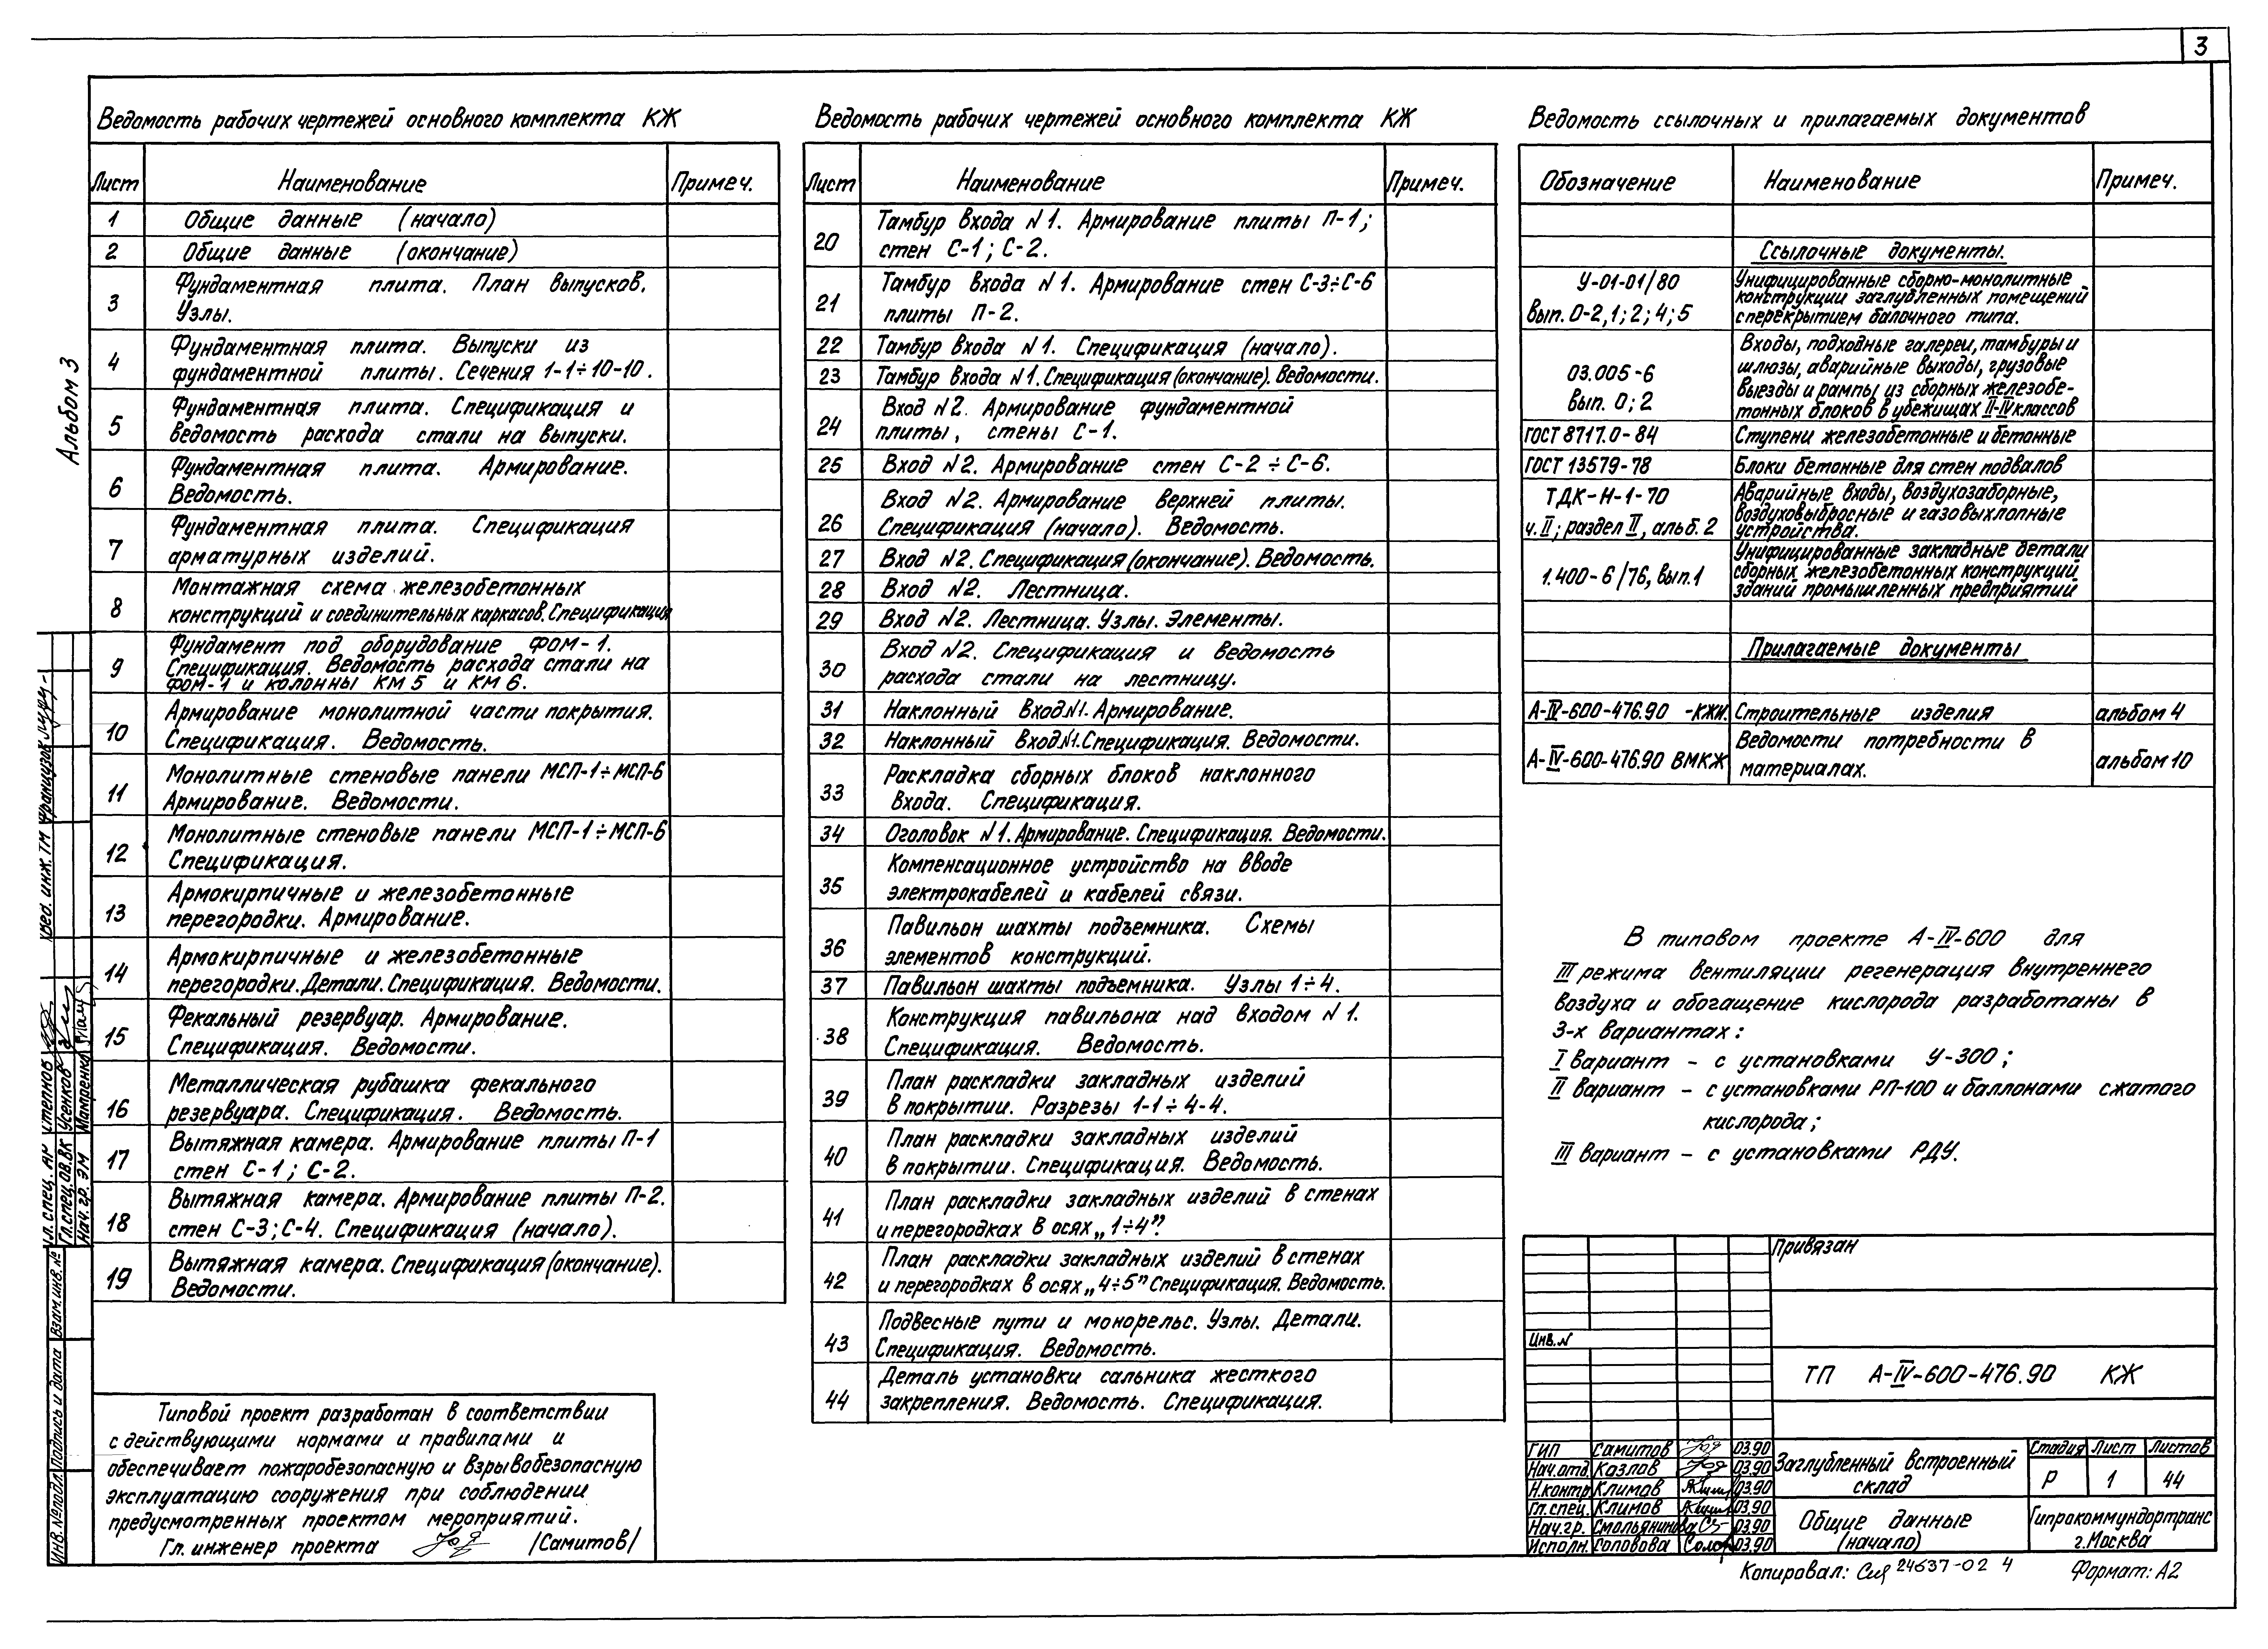 3
Альбом 3
Ведомость рабочих чертежей основного комплекта КЖ
Лист Наименование Примеч.
1 Общие данные (начало)
2 Общие данные (окончание)
3 Фундаментная плита. План выпусков.
Узлы.
4 Фундаментная плита. Выпуски из
фундаментной плиты. Сечения 1-1÷10-10.
5 Фундаментная плита. Спецификация и
ведомость расхода стали на выпуски.
6 Фундаментная плита. Армирование.
Ведомость.
7 Фундаментная плита. Спецификация
арматурных изделий.
8 Монтажная схема железобетонных
конструкций и соединительных каркасов. Спецификация
9 Фундамент под оборудование ФОМ-1.
Спецификация. Ведомость расхода стали на
ФОМ-1 и колонны КМ5 и КМ6.
10 Армирование монолитной части покрытия.
Спецификация. Ведомость.
11 Монолитные стеновые панели МСП-1÷МСП-6
Армирование. Ведомости.
12 Монолитные стеновые панели МСП-1÷МСП-6
Спецификация.
13 Армокирпичные и железобетонные
перегородки. Армирование.
14 Армокирпичные и железобетонные
перегородки. Детали. Спецификация. Ведомости.
15 Фекальный резервуар. Армирование.
Спецификация. Ведомости.
16 Металлическая рубашка фекального
резервуара. Спецификация. Ведомость.
17 Вытяжная камера. Армирование плиты П-1
стен С-1; С-2.
18 Вытяжная камера. Армирование плиты П-2.
стен С-3; С-4. Спецификация (начало).
19 Вытяжная камера. Спецификация (окончание).
Ведомости.
Типовой проект разработан в соответствии
с действующими нормами и правилами и
обеспечивает пожаробезопасную и взрывобезопасную
эксплуатацию сооружения при соблюдении
предусмотренных проектом мероприятий.
Гл. инженер проекта /Самитов/
Ведомость рабочих чертежей основного комплекта КЖ
Лист Наименование Примеч.
20 Тамбур входа N1. Армирование плиты П-1;
стен С-1; С-2.
21 Тамбур входа N1. Армирование стен С-3÷С-6
плиты П-2.
22 Тамбур входа N1. Спецификация (начало).
23 Тамбур входа N1. Спецификация (окончание). Ведомости.
24 Вход N2. Армирование фундаментной
плиты, стены С-1.
25 Вход N2. Армирование стен С-2÷С-6.
26 Вход N2. Армирование верхней плиты.
Спецификация (начало). Ведомость.
27 Вход N2. Спецификация (окончание). Ведомость.
28 Вход N2. Лестница.
29 Вход N2. Лестница. Узлы. Элементы.
30 Вход N2. Спецификация и ведомость
расхода стали на лестницу.
31 Наклонный вход N1. Армирование.
32 Наклонный вход N1. Спецификация. Ведомости.
33 Раскладка сборных блоков наклонного
входа. Спецификация.
34 Оголовок N1. Армирование. Спецификация. Ведомости.
35 Компенсационное устройство на вводе
электрокабелей и кабелей связи.
36 Павильон шахты подъемника. Схемы
элементов конструкций.
37 Павильон шахты подъемника. Узлы 1÷4.
38 Конструкция павильона над входом N1.
Спецификация. Ведомость.
39 План раскладки закладных изделий
в покрытии. Разрезы 1-1÷4-4.
40 План раскладки закладных изделий
в покрытии. Спецификация. Ведомость.
41 План раскладки закладных изделий в стенах
и перегородках в осях „1÷4”.
42 План раскладки закладных изделий в стенах
и перегородках в осях „4÷5” Спецификация. Ведомость.
43 Подвесные пути и монорельс. Узлы. Детали.
Спецификация. Ведомость.
44 Деталь установки сальника жесткого
закрепления. Ведомость. Спецификация.
Ведомость ссылочных и прилагаемых документов
Обозначение Наименование Примеч.
Ссылочные документы.
У-01-01/80 Унифицированные сборно-монолитные
конструкции заглубленных помещений
Вып. 0-2,1; 2; 4; 5 с перекрытием балочного типа.
Входы, подходные галереи, тамбуры и
03.005-6 шлюзы, аварийные выходы, грузовые
выезды и рампы из сборных железобе-
вып. 0; 2 тонных блоков в убежищах II-IV классов
ГОСТ 8717.0-84 Ступени железобетонные и бетонные
ГОСТ 13579-78 Блоки бетонные для стен подвалов
ТДК-Н-1-70 Аварийные входы, воздухозаборные,
воздуховыбросные и газовыхлопные
ч. II; раздел II, альб. 2 устройства.
Унифицированные закладные детали
1.400-6/76, вып.1 сборных железобетонных конструкций
зданий промышленных предприятий
Прилагаемые документы
А-IV-600-476.90 -КЖИ. Строительные изделия альбом 4
А-IV-600-476.90 ВМКЖ Ведомости потребности в
материалах. альбом 10
В типовом проекте А-IV-600 для
III режима вентиляции регенерация внутреннего
воздуха и обогащение кислорода разработаны в
3-х вариантах:
I вариант - с установками У-300;
II вариант - с установками РП-100 и баллонами сжатого
кислорода;
III вариант - с установками РДУ.
Привязан
Инв. N
ТП А-IV-600-476.90 КЖ
ГИП Самитов 03.90
Нач.отд. Казлов 03.90
Н.контр Климов 03.90
Гл.спец. Климов 03.90
Нач.гр. Смольянинова 03.90
Исполн. Соловова 03.90
Заглубленный встроенный
склад
Стадия Лист Листов
Р 1 44
Общие данные
(начало)
Гипрокоммундортранс
г. Москва
Копировал: 24637-02 4 Формат: А2
Вед. инж. ТМ Французов
Гл. спец. АК Степнов
Гл. спец. ОВ, ВК Усенков
Нач. гр. ЭМ
Инв. № подл. Подпись и дата Взам. инв. №